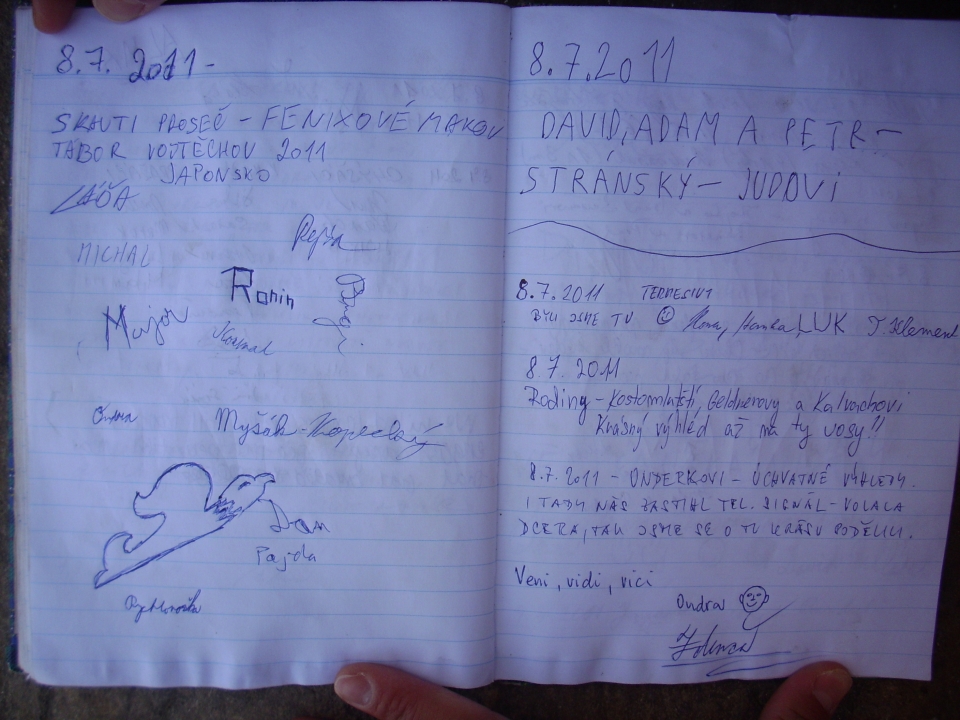 8.7. 2011 -
SKAUTI PROSEČ - FENIXOVÉ MAKOV
TÁBOR VOJTĚCHOV 2011
JAPONSKO
LÁĎA
MICHAL
Ronin
Major
Ondra
Myšák - Kopecký
Dan
Pajda
8.7.2011
DAVID, ADAM A PETR -
STRÁNSKÝ - JUDOVI
8.7.2011
BYLI JSME TU ☺ Hanka, LUK T. Klement
8.7. 2011
Rodiny - Kostomlatští, Geldnerovy a Kalvachovi
Krásný výhled až na ty vosy!!
8.7. 2011 - ONDERKOVI - ÚCHVATNÉ VÝHLEDY.
I TADY NÁS ZASTIHL TEL. SIGNÁL - VOLALA
DCERA, TAK JSME SE O TU KRÁSU PODĚLILI.
Veni, vidi, vici
Ondra